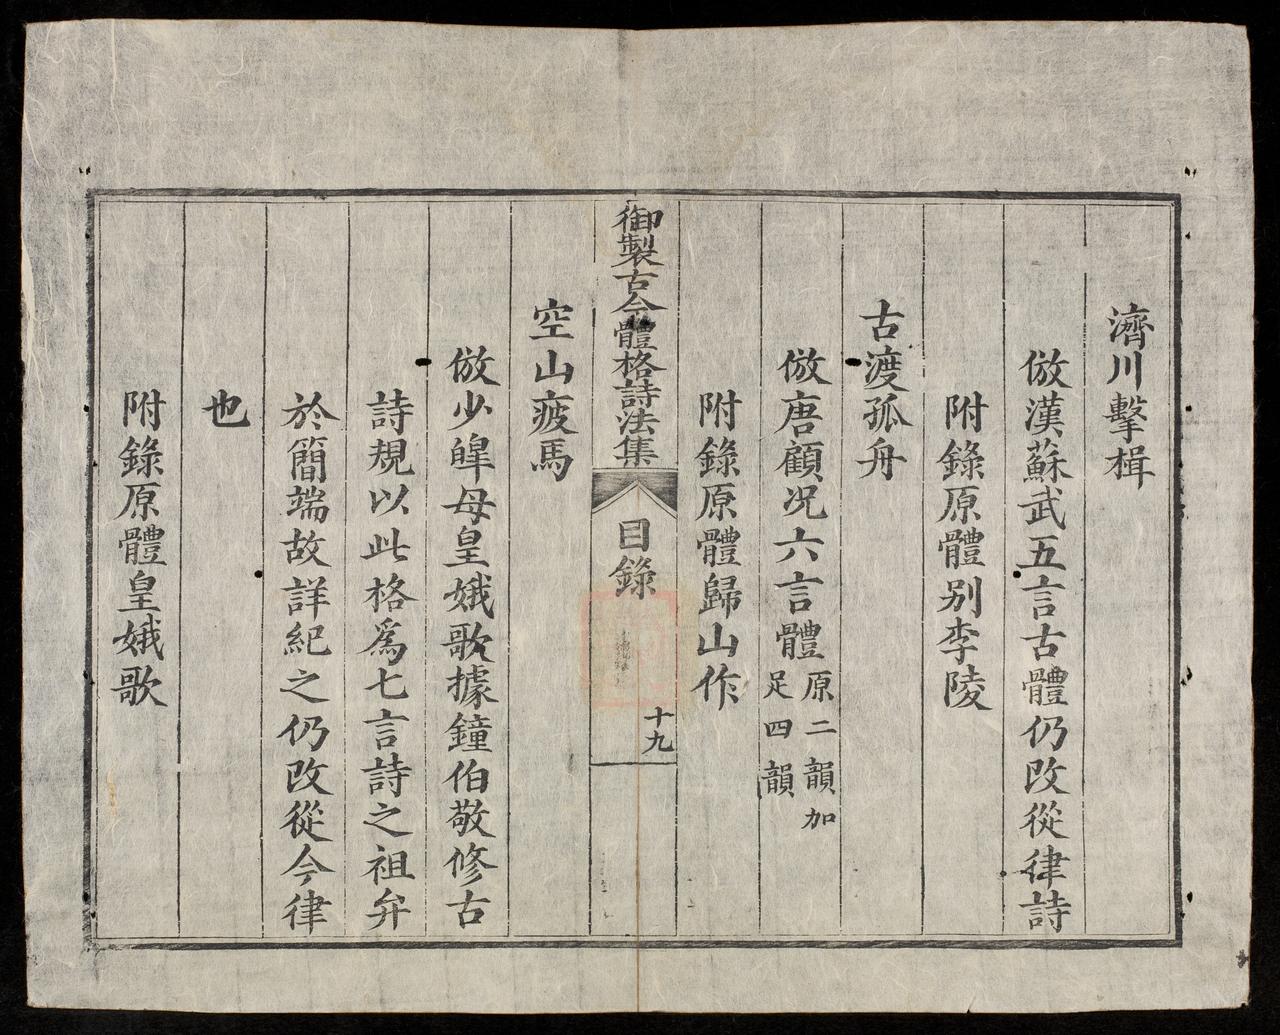 濟川擊楫
倣漢蘇武五言古體仍改從律詩
附錄原體别李陵
古渡孤舟
倣唐顧况六言體原二韻加
足四韻
附錄原體歸山作
御製古今體格詩法集
目錄
十九
空山疲馬
倣少皡母皇娥歌據鐘伯敬修古
詩規以此格爲七言詩之祖弁
於簡端故詳紀之仍改從今律
也
附錄原體皇娥歌